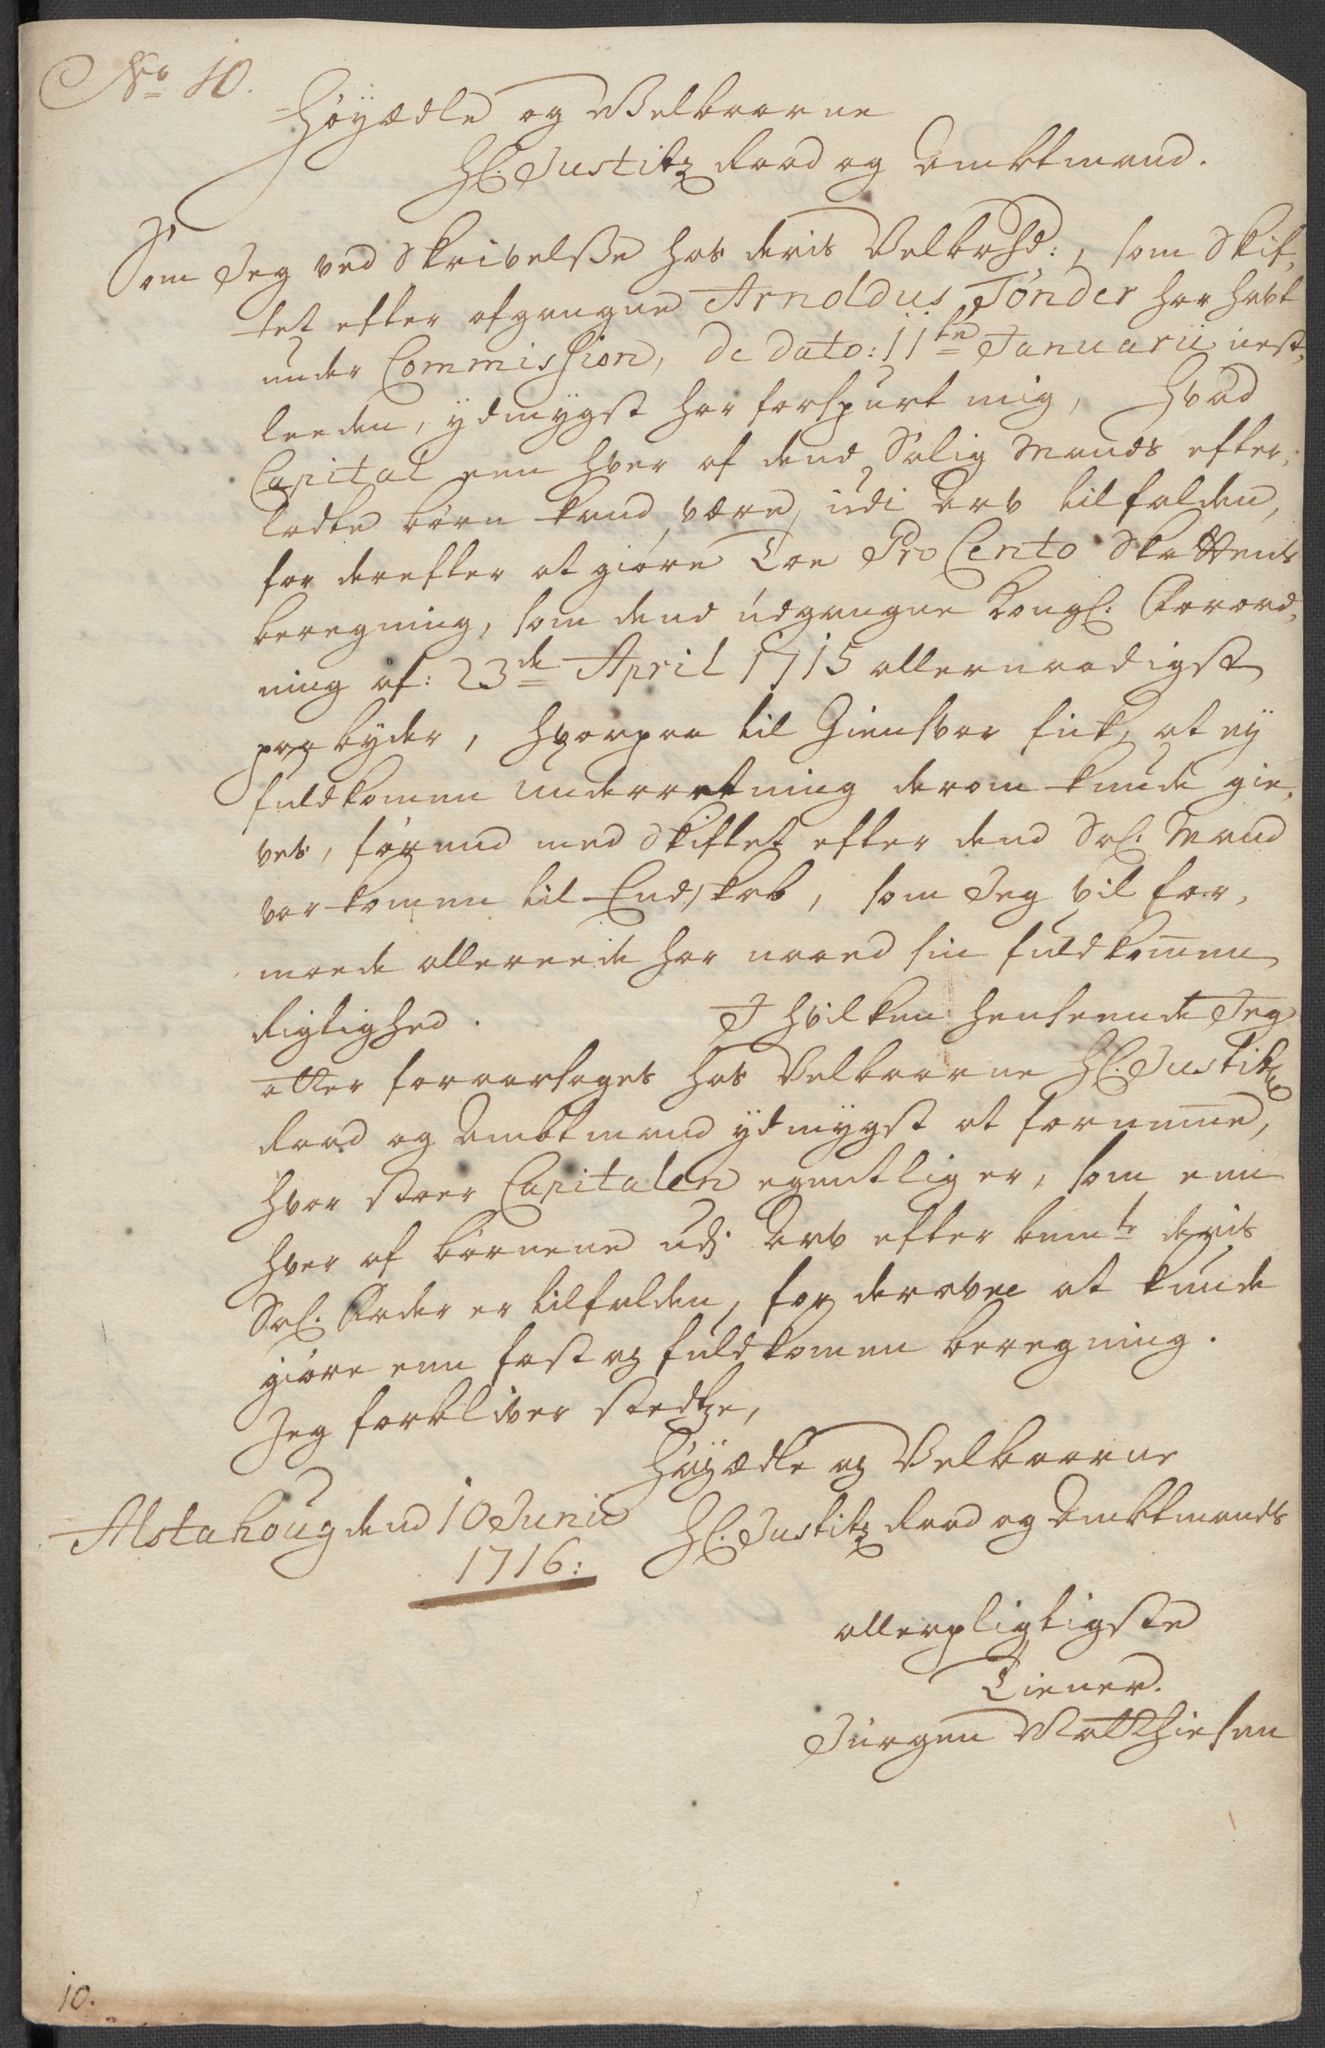 No 10.
Høyædle og Velbaarne
Hr. Justitz Raad og Ambtmand.
Som Jeg ved Skrivelsse hos deris Velbrhd:, som Skif,
tet efter afgangne Arnoldus Tønder har havt
under Commission, de dato: 11te Januarii nest,
leeden, ydmygst har forspurt mig, Hvad
Capital enn hver af dend Salig Mands efter,
ladte børn kand være, udi Arv tilfalden,
for derefter at giøre Toe Pro Cento Skattens
beregning, som dend udgangne Kongl. Forord,
ning af: 23de April 1715 allernaadigst
paabyder, Hvorpaa til Giensvar fik, at ej
fuldkommen underretning derom kunde gie,
ves, førend med Skiftet efter dend Sal. Mand
var kommen til Endskab, som Jeg vil for,
moede allereede har naaed sin fuldkommen
Rigtighed. I hvilken henseende Jeg
atter foraarsages hos Velbaarne Hr. Justitz
Raad og Ambtmand ydmygst at fornemme,
hvor stoer Capitalen egentlig er, som enn
hver af børnene udj Arv efter bemte deris
Sal. Fader er tilfalden, for derover at kunde
giøre enn fast og fuldkommen beregning.
Jeg forbliver stedtze,
Høyædle og Velbaarne
Alstahoug dend 10 Junii Hr. Justitz Raad og Ambtmands
1716:
allerpligtigste
Tiener.
Jürgen Matthiesen
10.